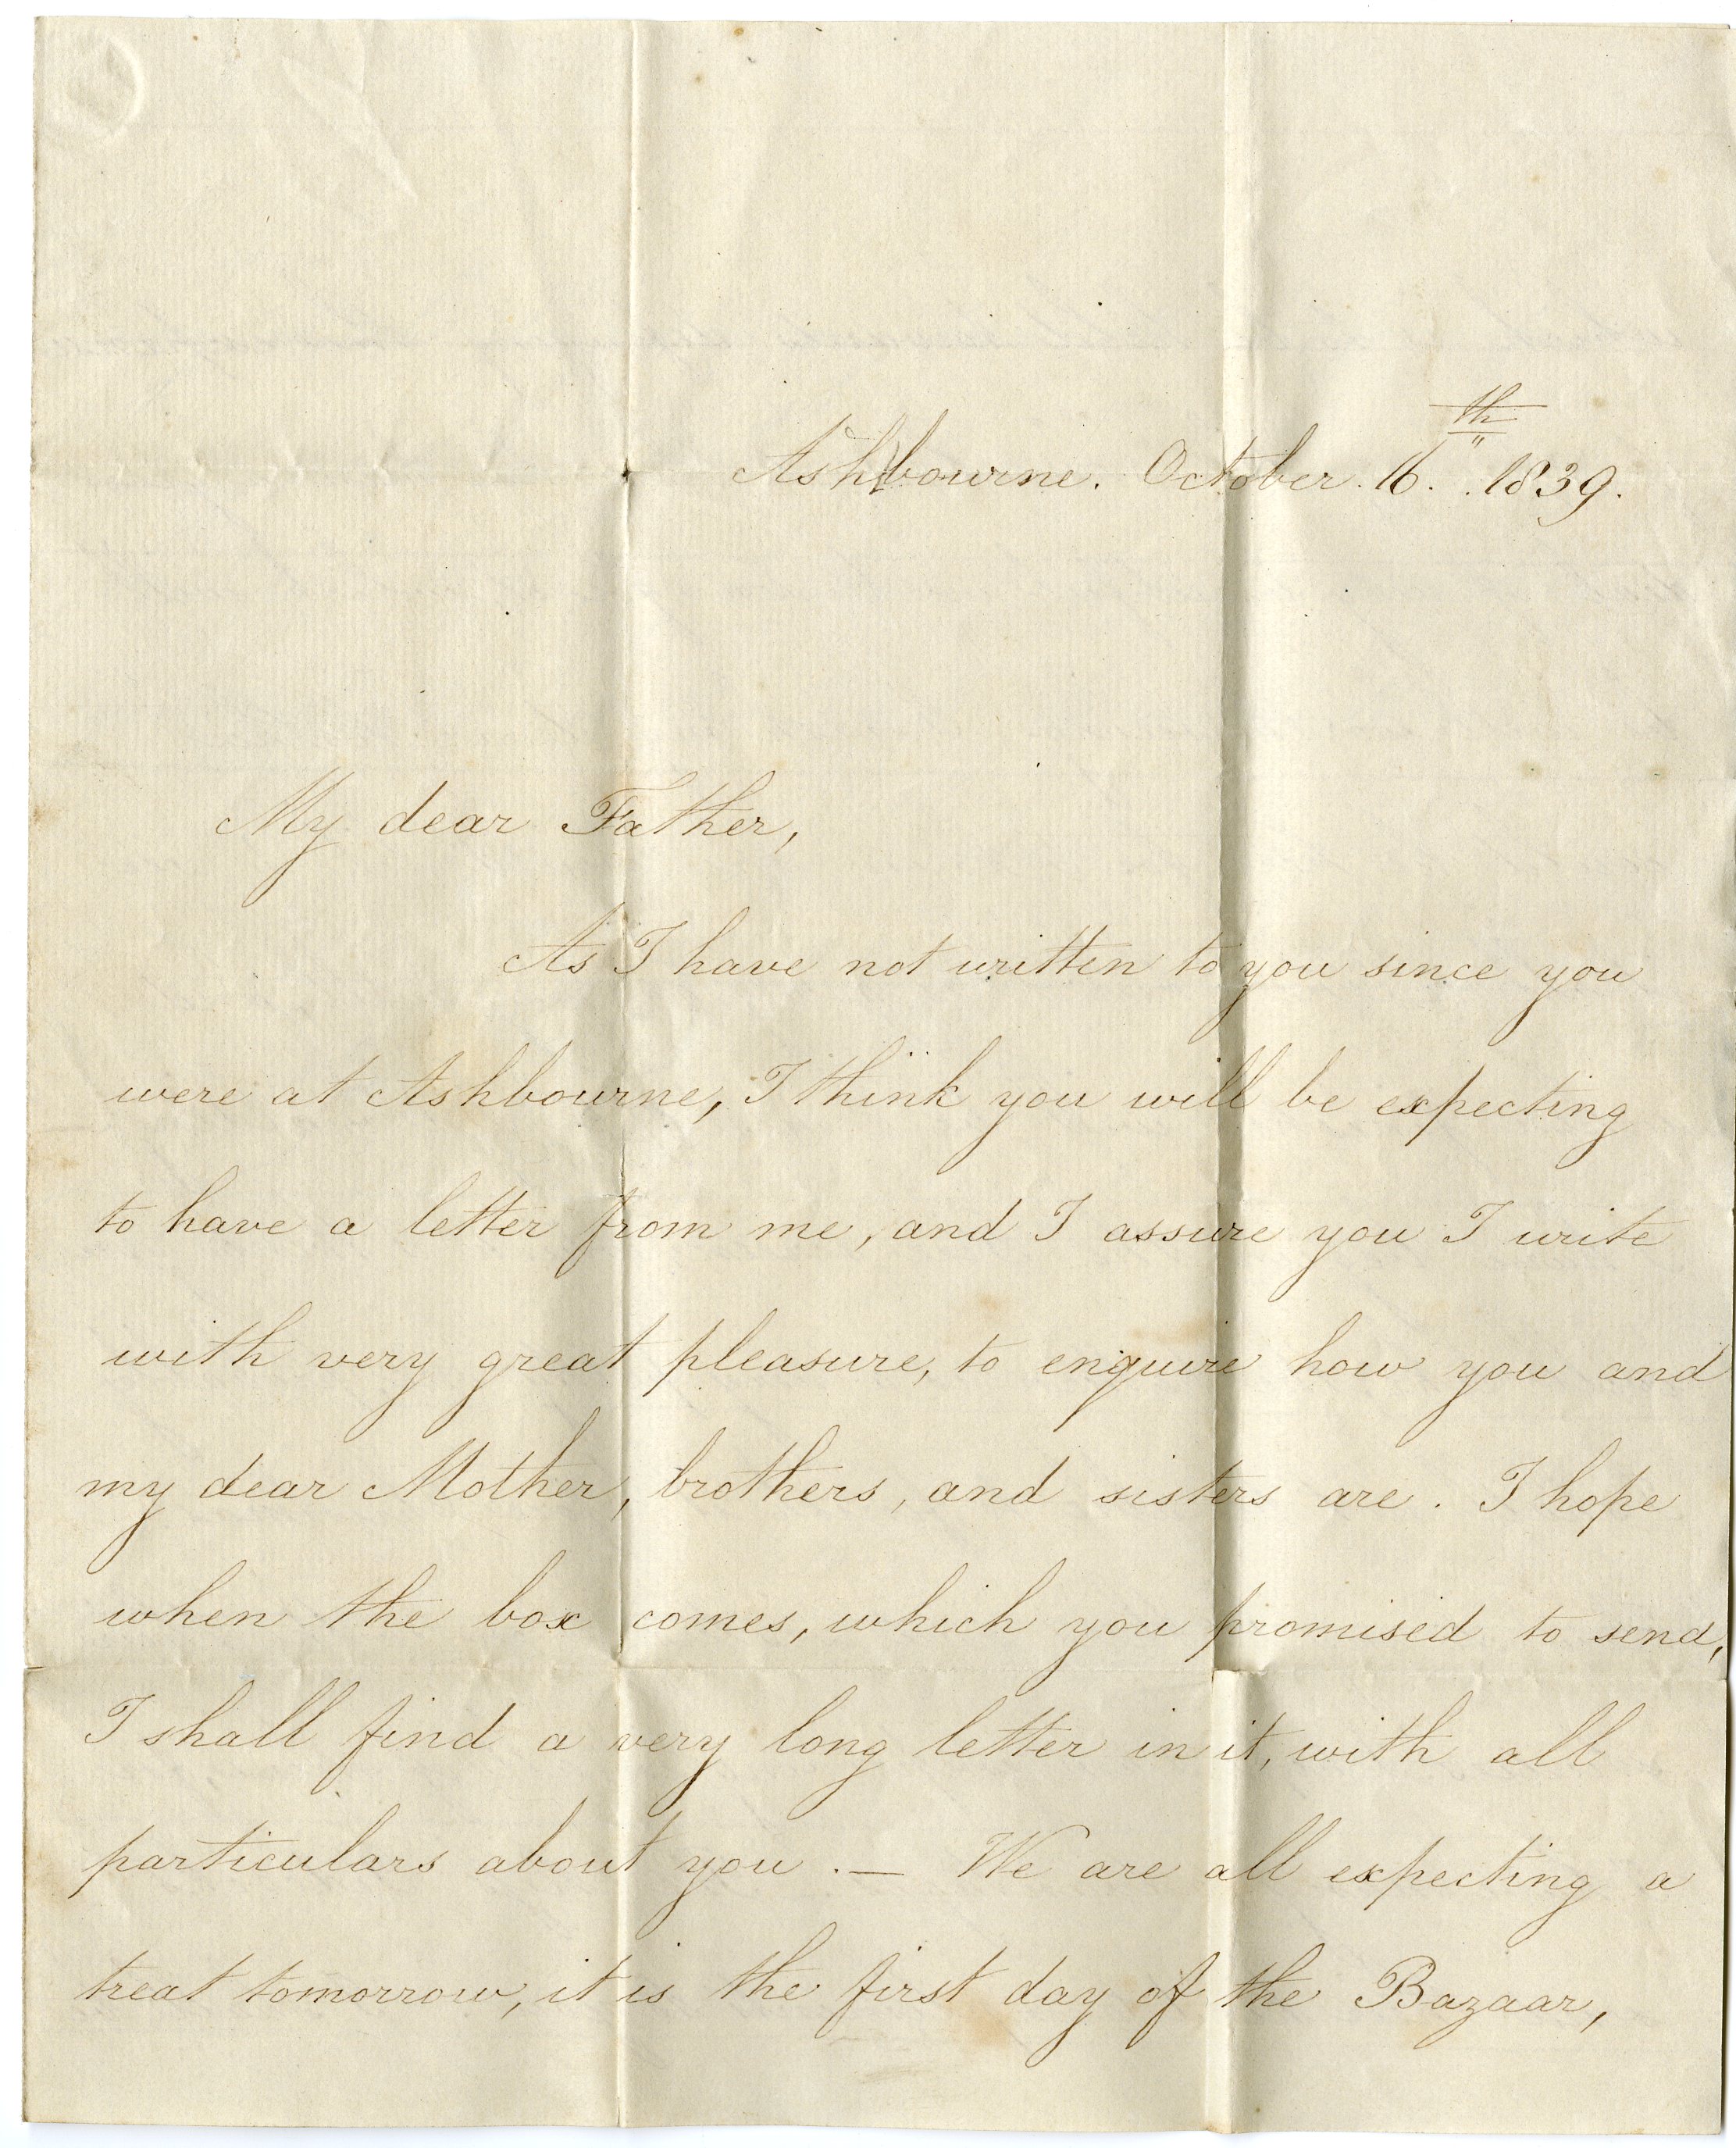 Ashbourne. October. 16.th 1839.
My dear Father,
As I have not written to you since you
were at Ashbourne, I think you will be expecting
to have a letter from me, and I assure you I write
with very great pleasure, to enquire how you and
my dear Mother, brothers, and sisters are. I hope
when the box comes, which you promised to send,
I shall find a very long letter in it, with all
particulars about you. — We are all expecting a
treat tomorrow, it is the first day of the Bazaar,